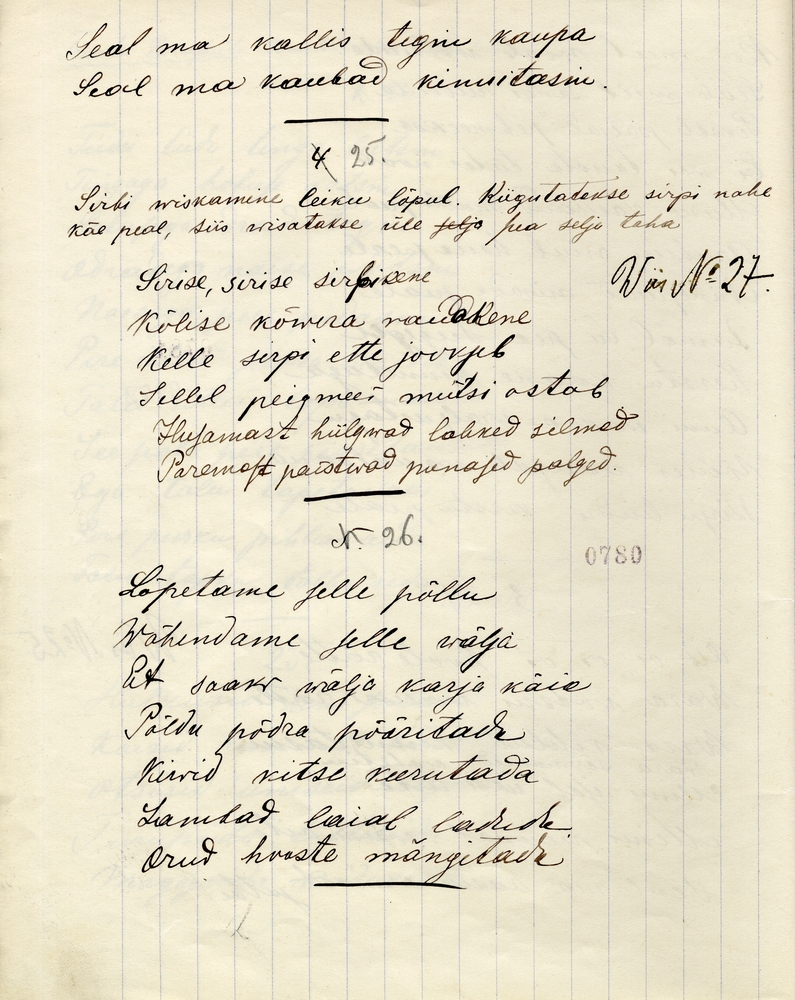 Seal ma kallis tegin kaupa
Seal ma kaubad kinnitasin.
4 25.
Sirbi wiskamine leiku lõpul. Kiigutatakse sirpi nahe
käe peal, siis wisatakse üle selja pea selja taha
Sirise, sirise sirbikene
Wiis No 27.
Kõlise kõwera raudakene
Kelle sirpi ette jookseb
Sellel peigmees mütsi ostab
Ilusamast hiilgwad labked silmad
Paremast paistwad punased palged.
26.
0780
Lõpetame selle põllu
Wähendame selle wälja
Et saaks wälja karja käia
Põldu põdra pööritada
Kiwid kitse keerutada
Lambad laial laduda
Orud hooste mängitada